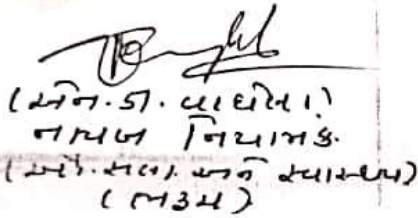 (એન.ડી. વાઘેલા)
નાયબ નિયામક
(ઔ.સલા. અને સ્વાસ્થ્ય)
(ભરૂચ)